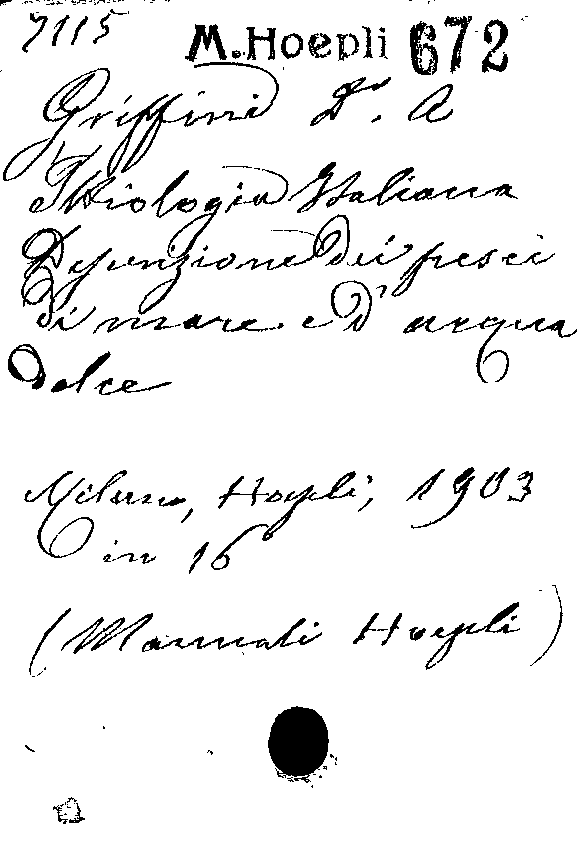 7115 M. Hoepli 672
Griffini Dr. A
Ittiologia Italiana
Descrizione dei pesci
di mare e d'acqua
dolce
Milano, Hoepli, 1903
in 16
(Manuali Hoepli)